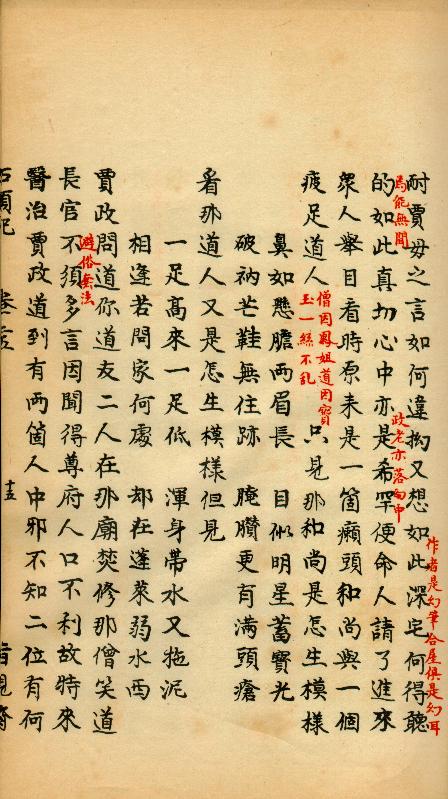 耐賈母之言如何違拗又想如此深宅何得聽
作者是幻筆合屋俱是幻耳
焉能無聞
的如此真切心中亦是希罕便命人請了進來
政老亦落幻中
衆人舉目看時原来是一箇癩頭和尚與一個
疲足道人
僧因鳳姐道因寳
玉一絲不乱
只見那和尚是怎生模樣
鼻如懸膽兩眉長　目似明星蓄寳光
破衲芒鞋無住跡　腌臢更有满頭瘡
看那道人又是怎生模樣但見
一足高來一足低　渾身帶水又拖泥
相逢若問家何處　却在蓬萊弱水西
賈政問道你道友二人在那廟焚修那僧笑道
避俗套法
長官不須多言因聞得尊府人口不利故特來
醫治賈政道到有兩箇人中邪不知二位有何
石頭記　卷二五　十五　脂硯齋